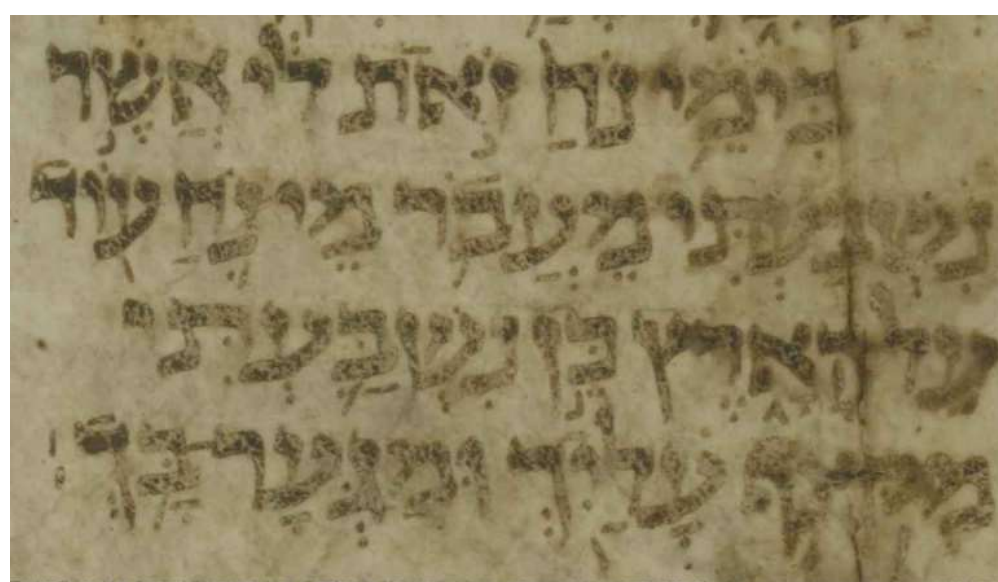 כִּימֵי נֹחַ זֹאת לִי אֲשֶׁר
נִשְׁבַּעְתִּי מֵעֲבֹר מֵי נֹחַ עוֹד
עַל הָאָרֶץ כֵּן נִשְׁבַּעְתִּי
מִקְּצֹף עָלַיִךְ וּמִגְּעָר־בָּךְ׃